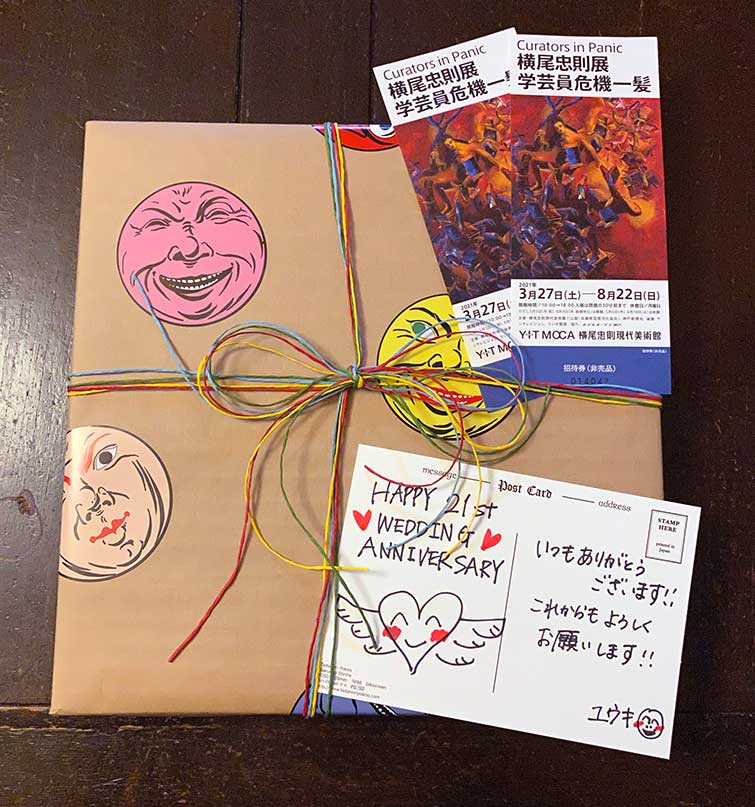 Curators in Panic
横尾忠則展
学芸員危機一髪
Curators in Panic
横尾忠則展
学芸員危機一髪
2021年
3月27日(土)―8月22日(日)
Y+T MOCA 横尾忠則現代美術館
招待券(非売品)
014047
2021年
3月27日
Y+T MOCA
message
Post Card
address
HAPPY 21st
WEDDING
ANNIVERSARY
STAMP
HERE
printed in
Japan
いつもありがとう
ございます!!
これからも よろしく
お願いします!!
ユウキ